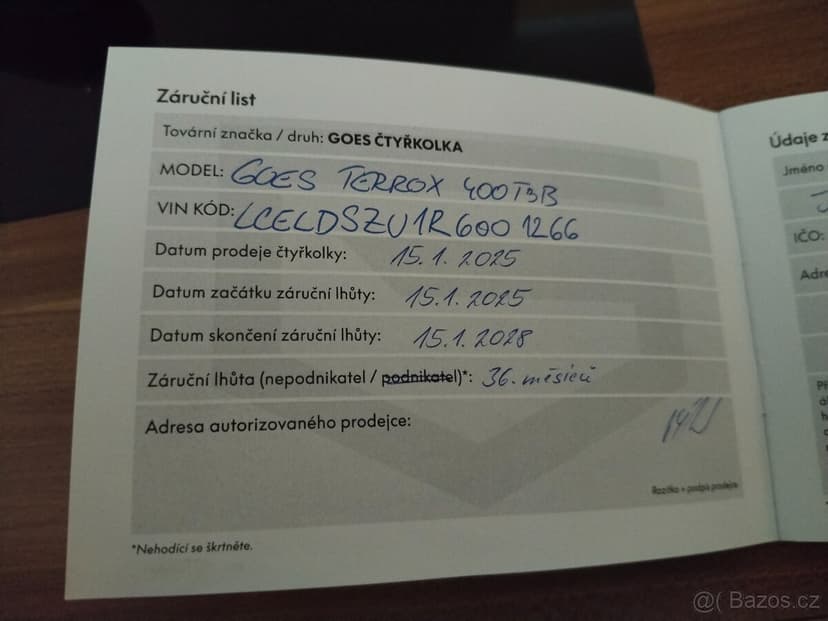 Záruční list
Tovární značka / druh: GOES ČTYŘKOLKA
MODEL: GOES TERROX 400T3B
VIN KÓD: LCELDSZU1R6001266
Datum prodeje čtyřkolky: 15.1.2025
Datum začátku záruční lhůty: 15.1.2025
Datum skončení záruční lhůty: 15.1.2028
Záruční lhůta (nepodnikatel / podnikatel)*: 36. měsíců
Adresa autorizovaného prodejce:
Razítko + podpis prodejce
*Nehodící se škrtněte.
Údaje z
Jméno
IČO:
Adre
@( Bazos.cz